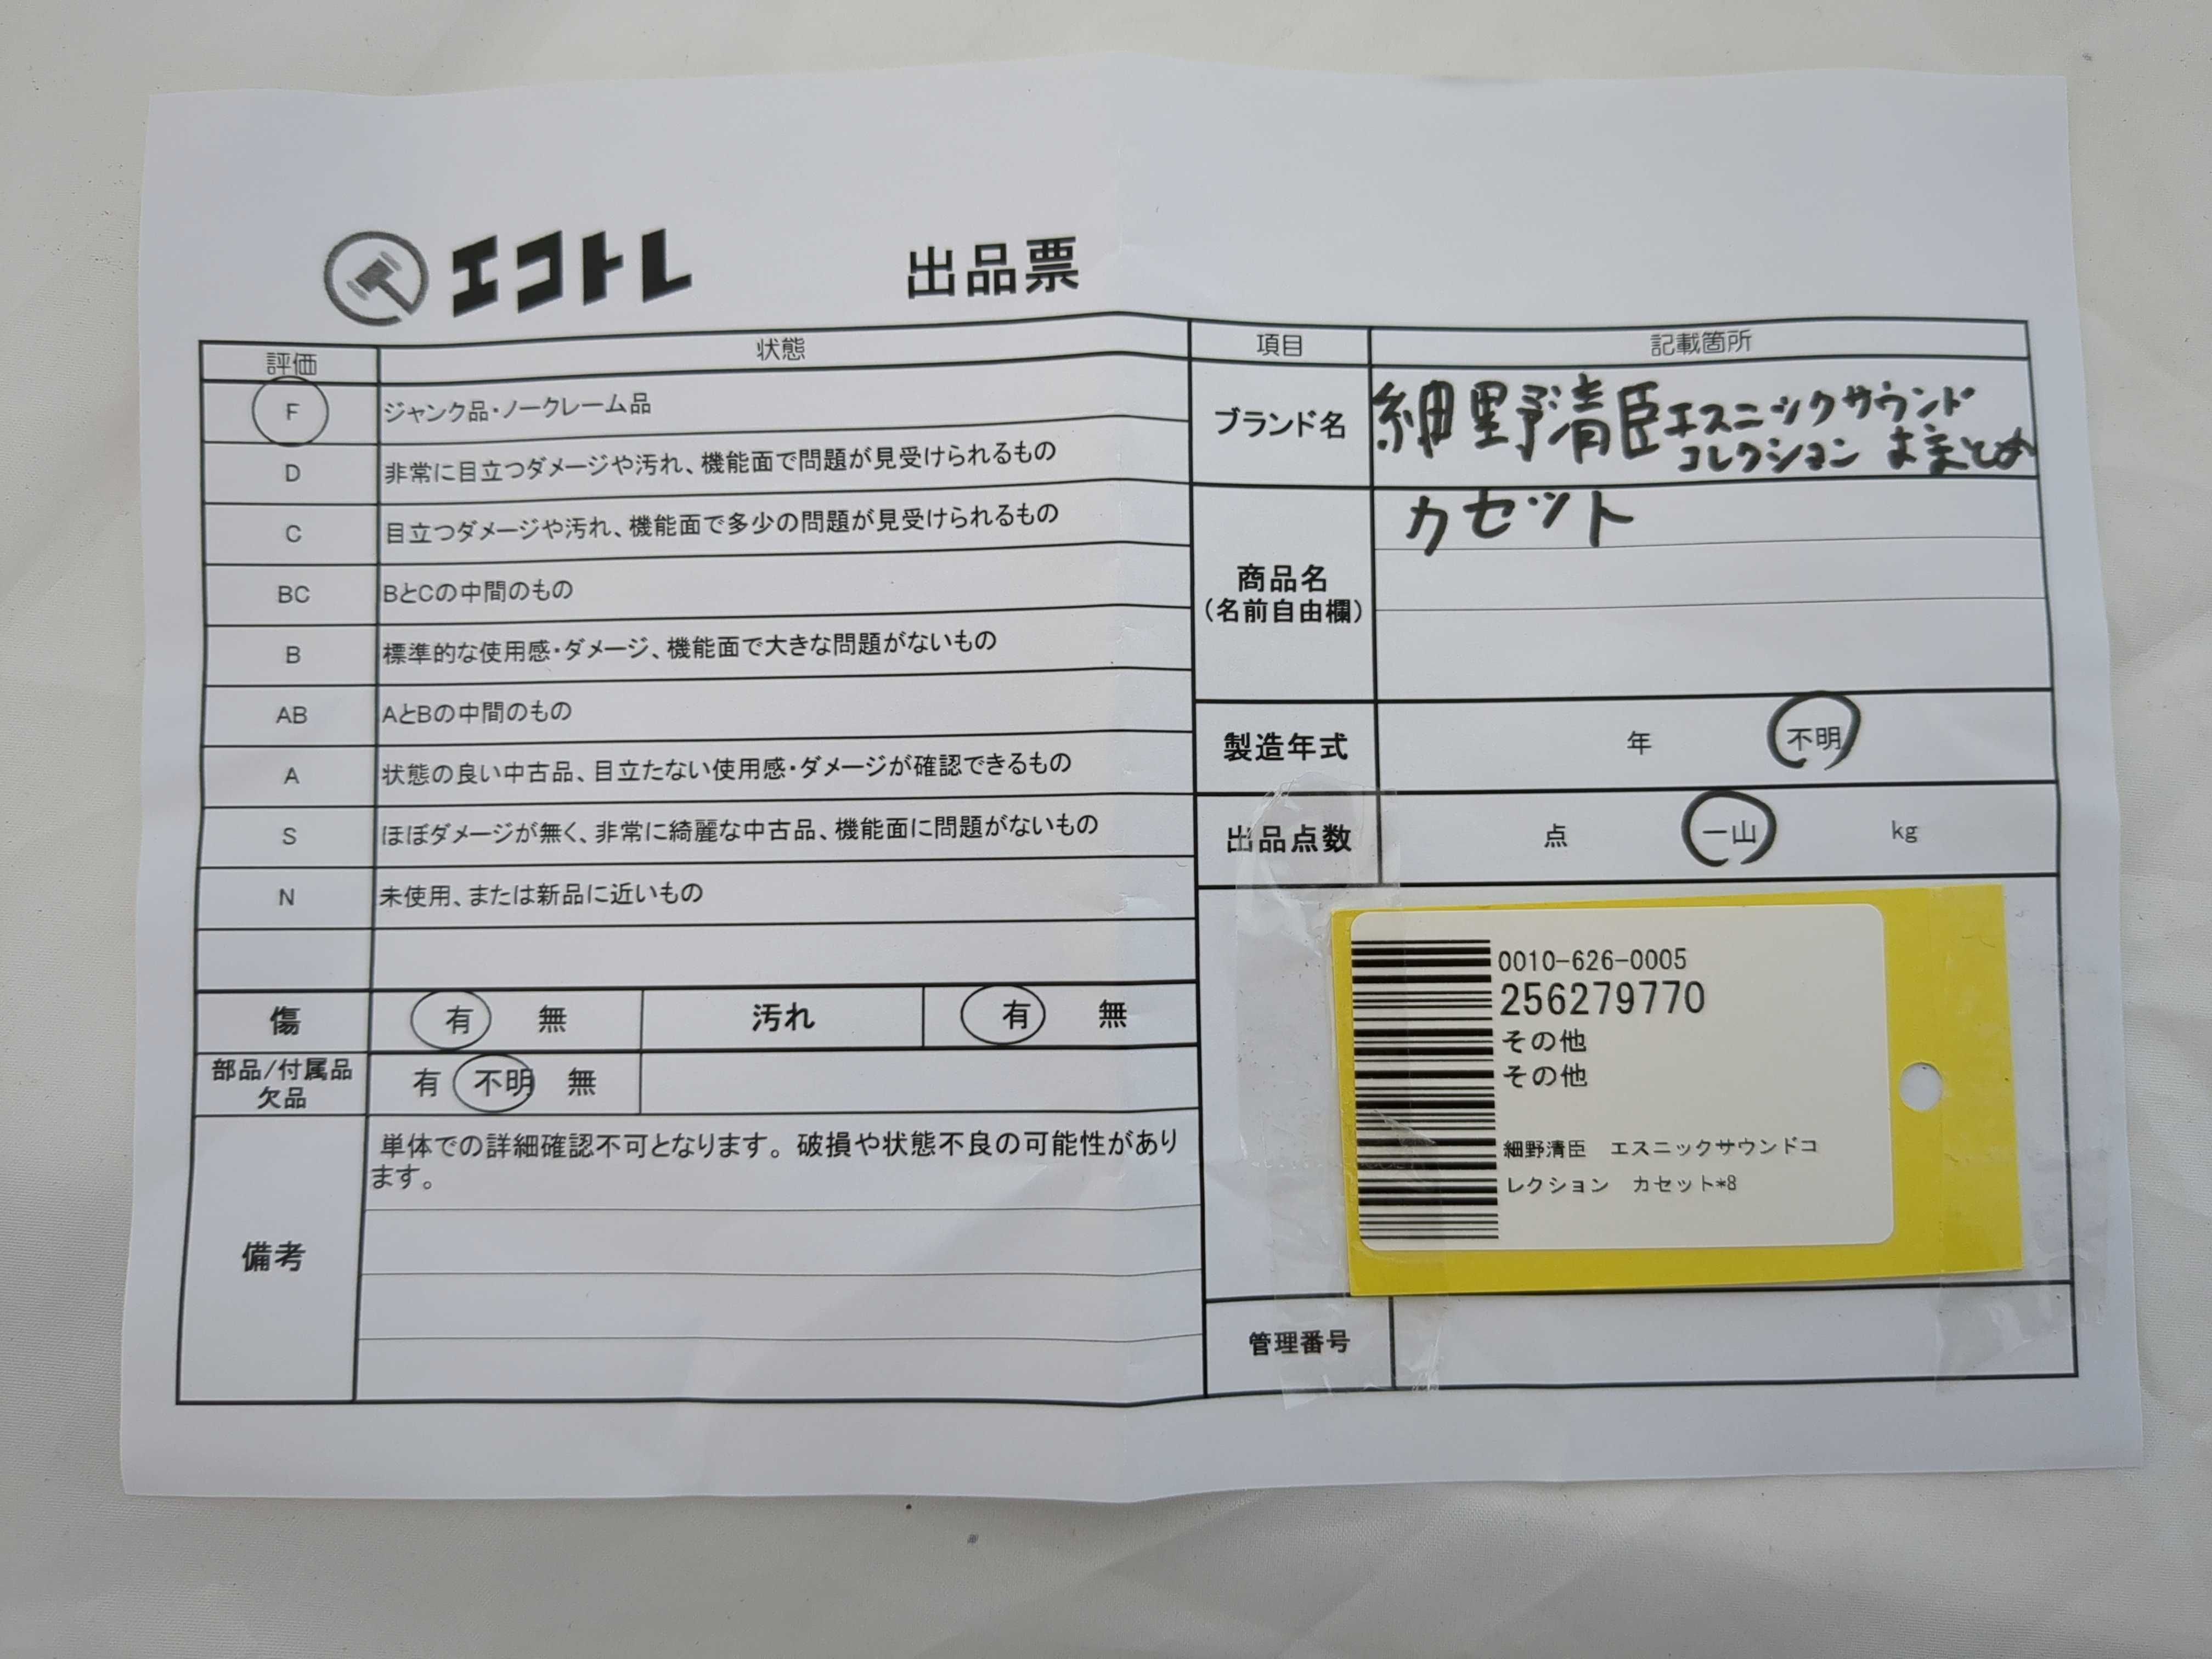 エコトレ 出品票
評価 状態
F ジャンク品・ノークレーム品
D 非常に目立つダメージや汚れ、機能面で問題が見受けられるもの
C 目立つダメージや汚れ、機能面で多少の問題が見受けられるもの
BC BとCの中間のもの
B 標準的な使用感・ダメージ、機能面で大きな問題がないもの
AB AとBの中間のもの
A 状態の良い中古品、目立たない使用感・ダメージが確認できるもの
S ほぼダメージが無く、非常に綺麗な中古品、機能面に問題がないもの
N 未使用、または新品に近いもの
傷 有 無 汚れ 有 無
部品/付属品
欠品
有 不明 無
備考
単体での詳細確認不可となります。破損や状態不良の可能性があり
ます。
項目 記載箇所
ブランド名
細野清臣エスニックサウンド
コレクション おまとめ
商品名
(名前自由欄)
カセット
製造年式 年 不明
出品点数 点 一山 kg
0010-626-0005
256279770
その他
その他
細野清臣 エスニックサウンドコ
レクション カセット*8
管理番号